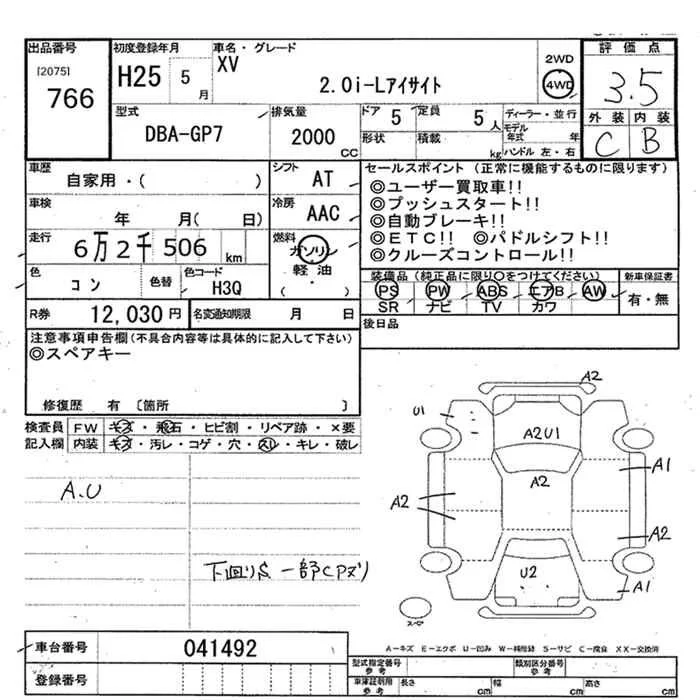 出品番号 初度登録年月 車名・グレード 2WD 評価点
[2075] H25 5月 XV 4WD 3.5
766 2.0i-Lアイサイト 外装 内装
型式 排気量 ドア 定員 ディーラー・並行 C B
DBA-GP7 2000 CC 5 5人 モデル年式 年
形状 積載 kg ハンドル 左・右
車歴 シフト セールスポイント (正常に機能するものに限ります)
自家用・( ) AT ◎ユーザー買取車!!
車検 冷房 ◎プッシュスタート!!
年 月( 日) AAC ◎自動ブレーキ!!
走行 燃料 ◎ETC!! ◎パドルシフト!!
6万2千506km ガソリン ◎クルーズコントロール!!
色 色替 色コード 軽油 装備品(純正品に限り○をつけてください) 新車保証書
コン H3Q ・( ) PS PW ABS エアB AW 有・無
SR ナビ TV カワ
R券 12,030円 名変通知期限 月 日 後日品
注意事項申告欄(不具合内容等は具体的に記入して下さい)
◎スペアキー
修復歴 有 〔箇所 〕
検査員 FW キズ・飛石・ヒビ割・リペア跡・×要
記入欄 内装 キズ・汚レ・コゲ・穴・スレ・キレ・破レ
A.U
下廻りS 一部CPヌリ
A2
U1
A2U1
A2
A1
A2
A2
U2
A1
スペア
車台番号 041492
A-キズ E-エクボ U-凹み W-補修跡 S-サビ C-腐食 XX-交換済
登録番号 型式指定番号 参考 類別区分番号 参考
車庫証明用 参考 長さ cm 幅 cm 高さ cm